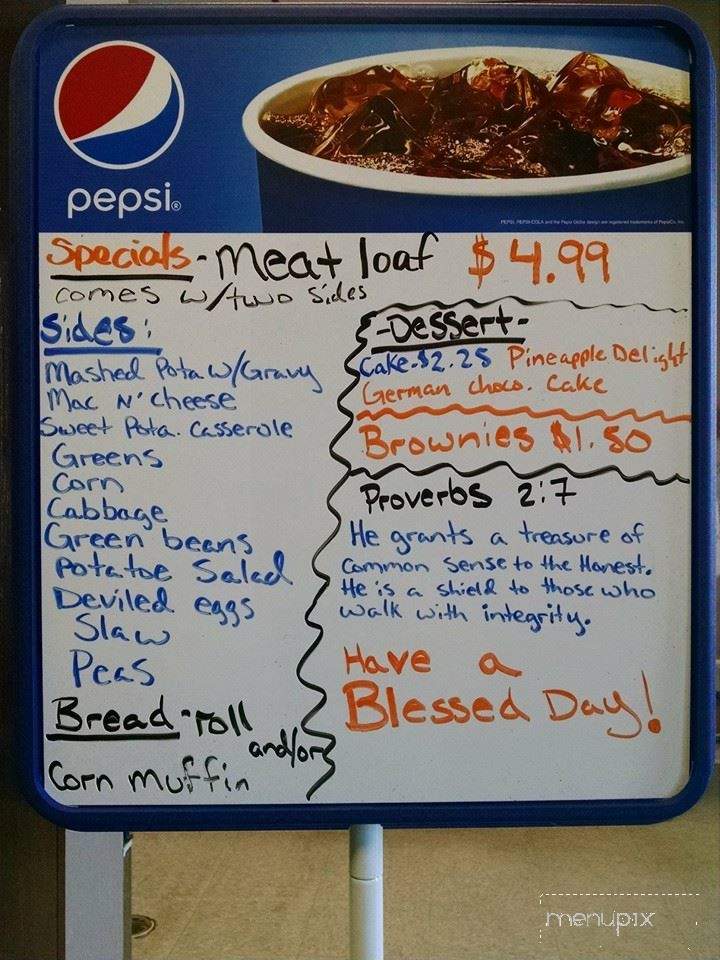 pepsi®
Specials - Meat loaf $4.99
comes w/two sides
Sides:
Mashed Pota w/Gravy
Mac N' Cheese
Sweet Pota. Casserole
Greens
Corn
Cabbage
Green beans
Potatoe Salad
Deviled eggs
Slaw
Peas
Bread - roll
and/or
Corn muffin
-Dessert-
Cake-$2.25 Pineapple Delight
German choco. Cake
Brownies $1.50
Proverbs 2:7
He grants a treasure of
common sense to the Honest.
He is a shield to those who
walk with integrity.
Have a
Blessed Day!
menupix